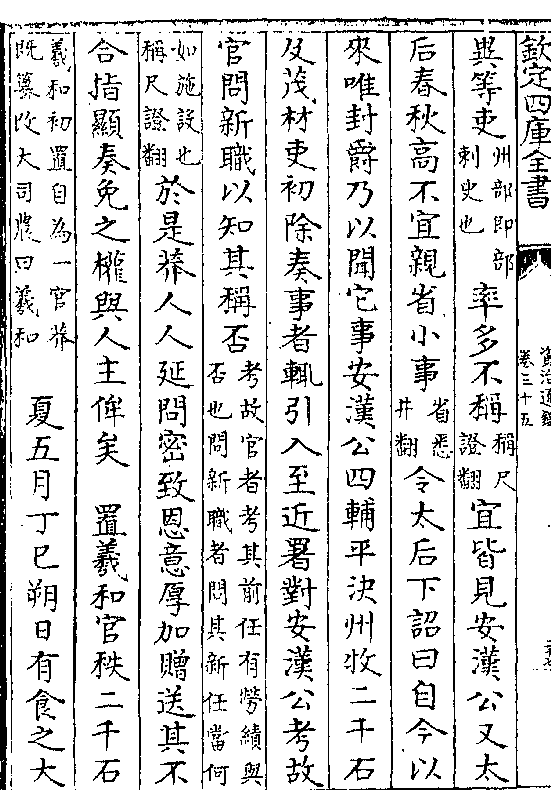 欽定四庫全書
資治通鑑
卷三十五
異等吏州部即部刺史也率多不稱稱尺證翻宜皆見安漢公又太
后春秋高不宜親省小事省悉井翻令太后下詔曰自今以
來唯封爵乃以聞它事安漢公四輔平決州牧二千石
及茂材吏初除奏事者輒引入至近署對安漢公考故
官問新職以知其稱否考故官者考其前任有勞績與否也問新職者問其新任當何
如施設也稱尺證翻於是莽人人延問密致恩意厚加贈送其不
合指顯奏免之權與人主侔矣 置羲和官秩二千石
羲和初置自為一官莽既篡改大司農曰羲和 夏五月丁巳朔日有食之大